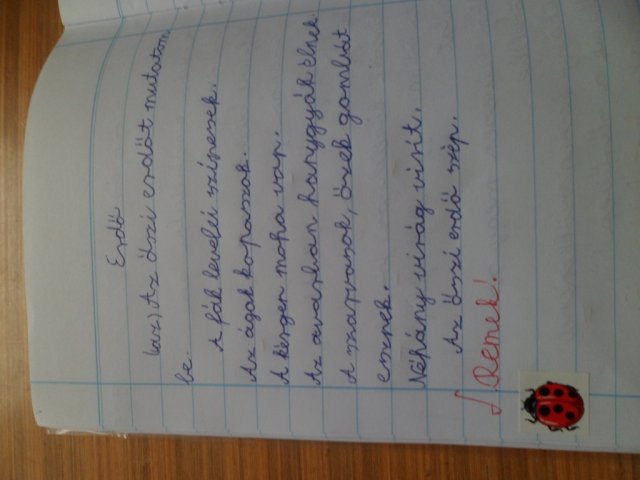 Erdő
(az) Az őszi erdőt mutatom
be.
A fák levelei színesek.
Az ágak kopaszok.
A kérgen moha van.
Az avarban hangyák élnek
A szarvasok, őzek gombát
esznek.
Néhány virág virít.
Az őszi erdő szép.
Remek!